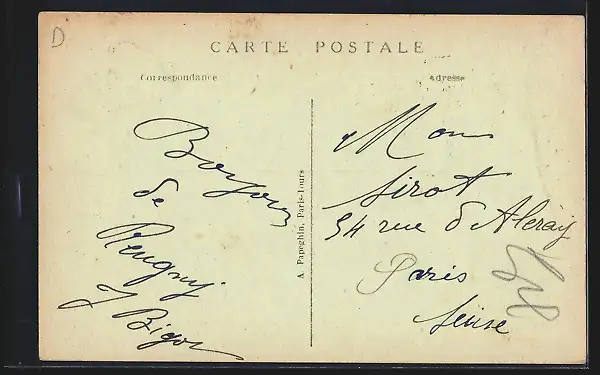 D
CARTE POSTALE
Correspondance
Adresse
Bonjour
de
Reugny
J Bigot
A. Papeghin, Paris-Tours
Mons
Sirot
54 rue d'Aleray
Paris
Seine